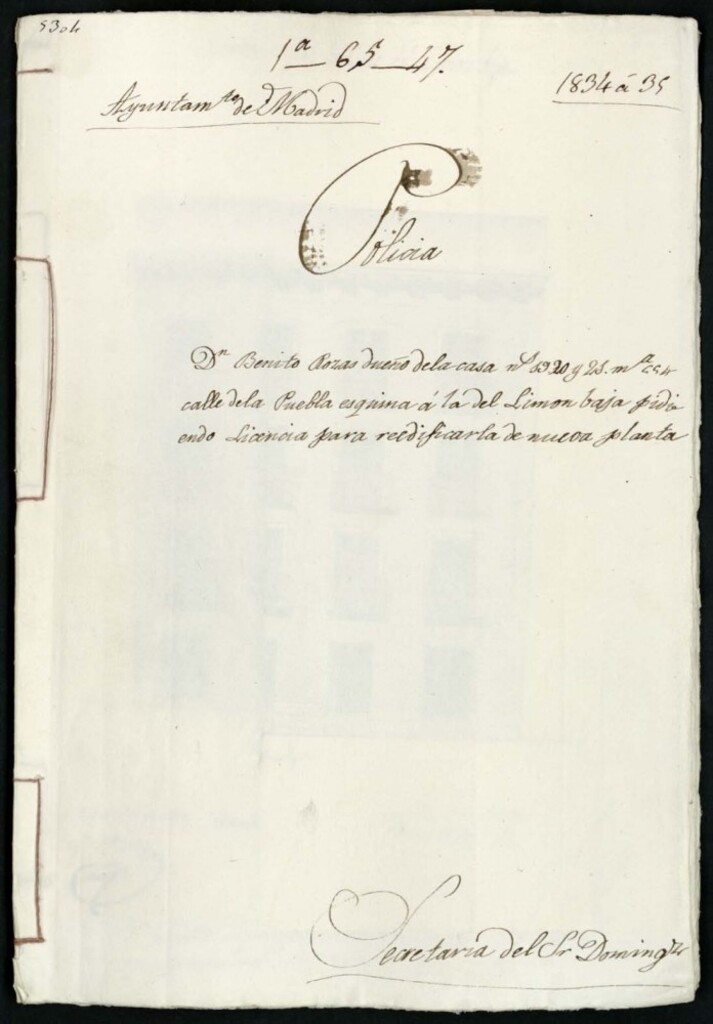 53o4
1ª — 65 — 47.
1834 á 35
Ayuntam.to de Madrid
Policia
Dn. Benito Rozas dueño de la casa nos. 19 20 y 21. m.a 554
calle dela Puebla esquina á la del Limon baja pidi
endo Licencia para reedificarla de nueva planta
Secretaría del Sr Doming.z